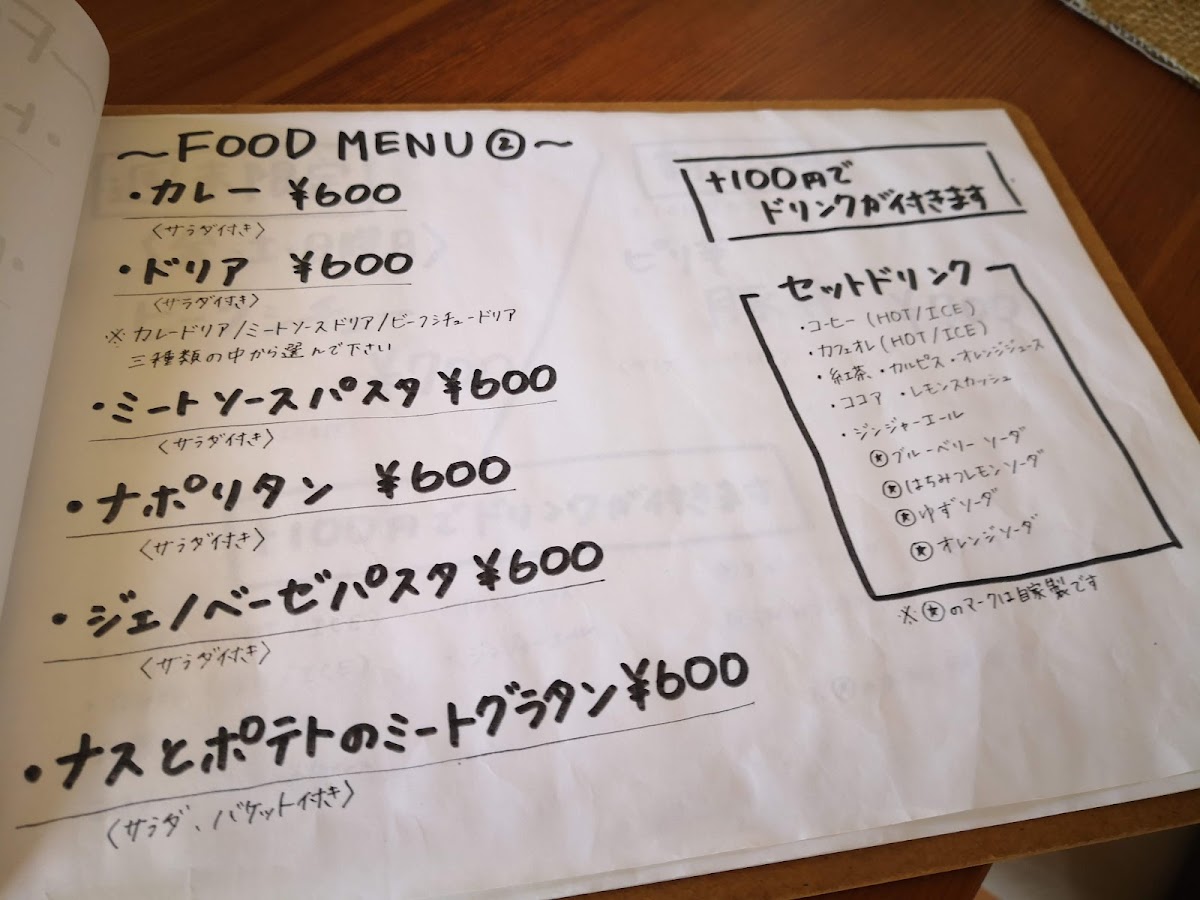 ～FOOD MENU②～
・カレー ¥600
〈サラダ付き〉
・ドリア ¥600
〈サラダ付き〉
※カレードリア/ミートソースドリア/ビーフシチュードリア
三種類の中から選んで下さい
・ミートソースパスタ ¥600
〈サラダ付き〉
・ナポリタン ¥600
〈サラダ付き〉
・ジェノベーゼパスタ ¥600
〈サラダ付き〉
・ナスとポテトのミートグラタン ¥600
〈サラダ、バケット付き〉
+100円で
ドリンクが付きます
セットドリンク
・コーヒー (HOT/ICE)
・カフェオレ (HOT/ICE)
・紅茶、・カルピス・オレンジジュース
・ココア ・レモンスカッシュ
・ジンジャーエール
⍟ブルーベリーソーダ
⍟はちみつレモンソーダ
⍟ゆずソーダ
⍟オレンジソーダ
※⍟のマークは自家製です